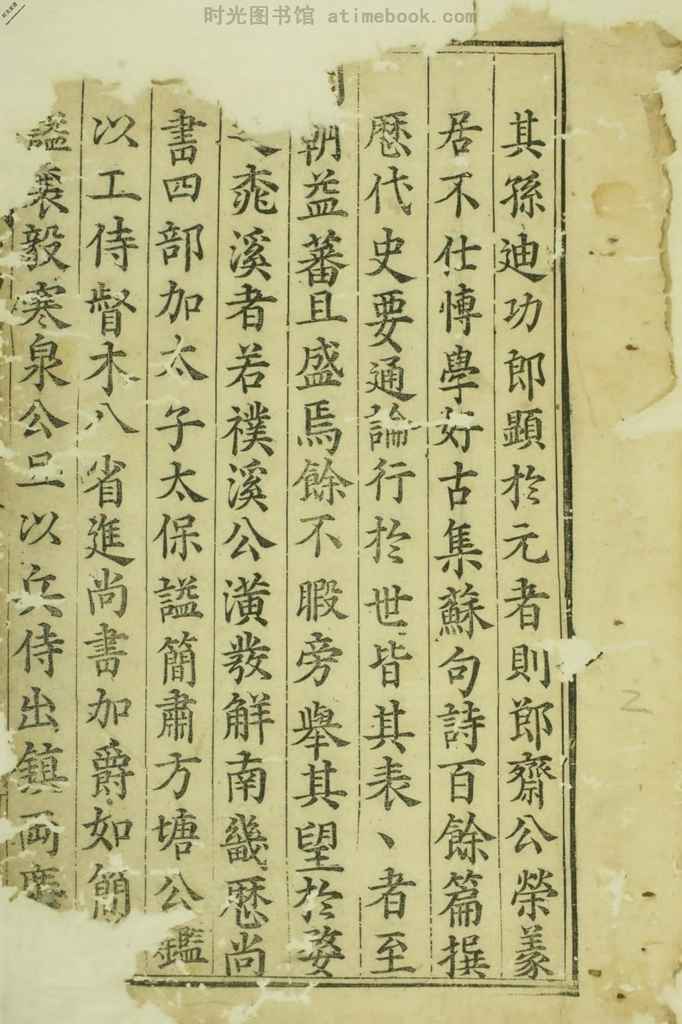 时光图书馆 atimebook.com
其孫迪功郎顯於元者則郎齋公榮義
居不仕愽學好古集蘇句詩百餘篇撰
歷代史要通論行於世皆其表丶者至
朝益蕃且盛焉餘不暇旁舉其望於婺
溪者若襆溪公潢發解南畿歷尚
書四部加太子太保謚簡肅方塘公鑑
以工侍督木八省進尚書加爵如簡
謚襄毅寒泉公旦以兵侍出鎮両